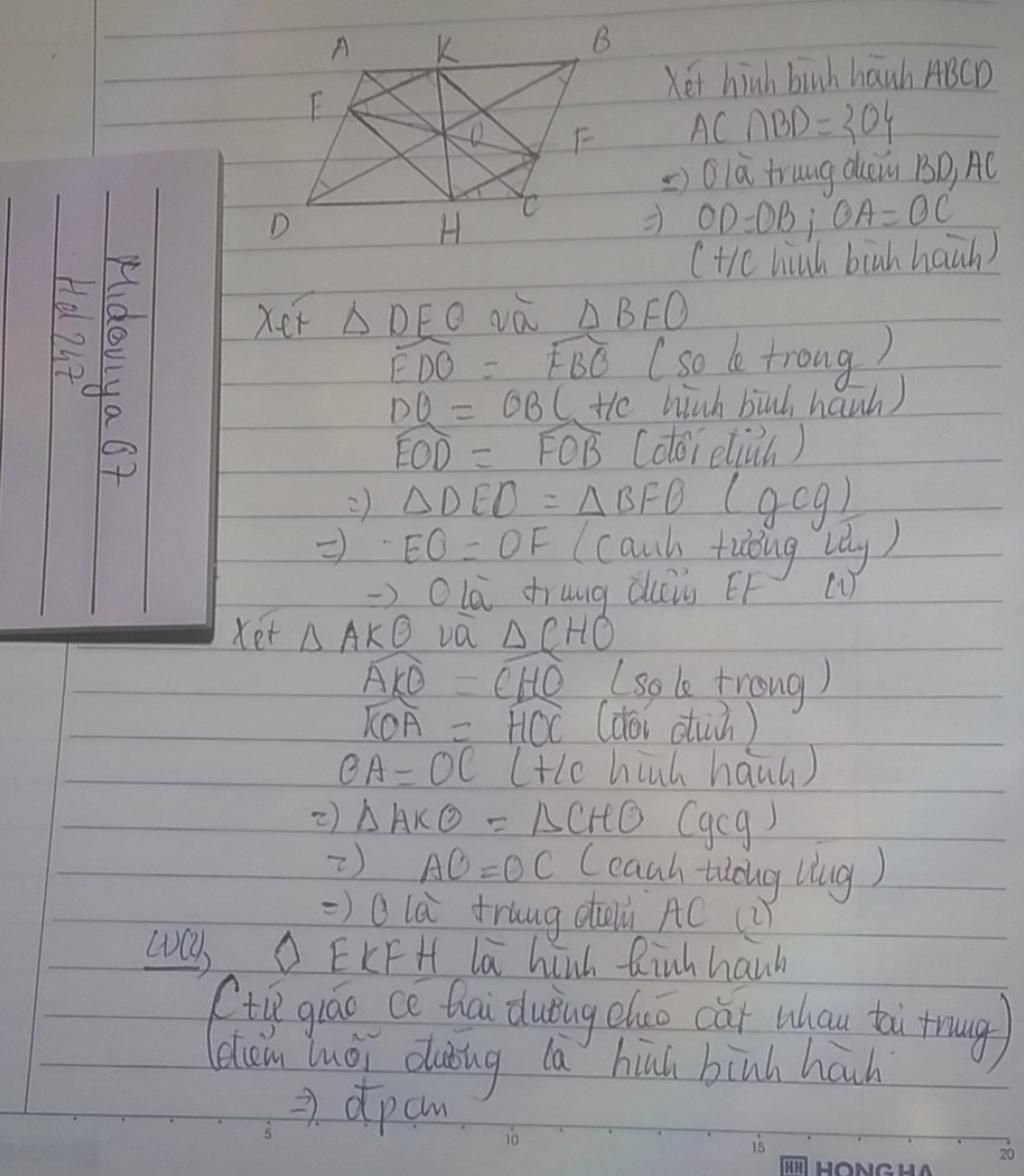 A K B
E O F
D H C
Xét hình bình hành ABCD
AC ∩ BD = {O}
=> O là trung điểm BD, AC
=> OD = OB ; OA = OC
(t/c hình bình hành)
Midoriya 67
Hd 247
Xét Δ DEO và Δ BFO
EDO = FBO (so le trong)
DO = OB (t/c hình bình hành)
EOD = FOB (đối đỉnh)
=> Δ DEO = Δ BFO (gcg)
=> EO = OF (cạnh tương ứng)
=> O là trung điểm EF (1)
Xét Δ AKO và Δ CHO
AKO = CHO (so le trong)
KOA = HOC (đối đỉnh)
OA = OC (t/c hình hành)
=> Δ AKO = Δ CHO (gcg)
=> AO = OC (cạnh tương ứng)
=> O là trung điểm AC (2)
◊ EKFH là hình bình hành
(tứ giác có hai đường chéo cắt nhau tại trung
điểm mỗi đường là hình bình hành)
=> đpcm
5 10 15 20
HH HONG HA